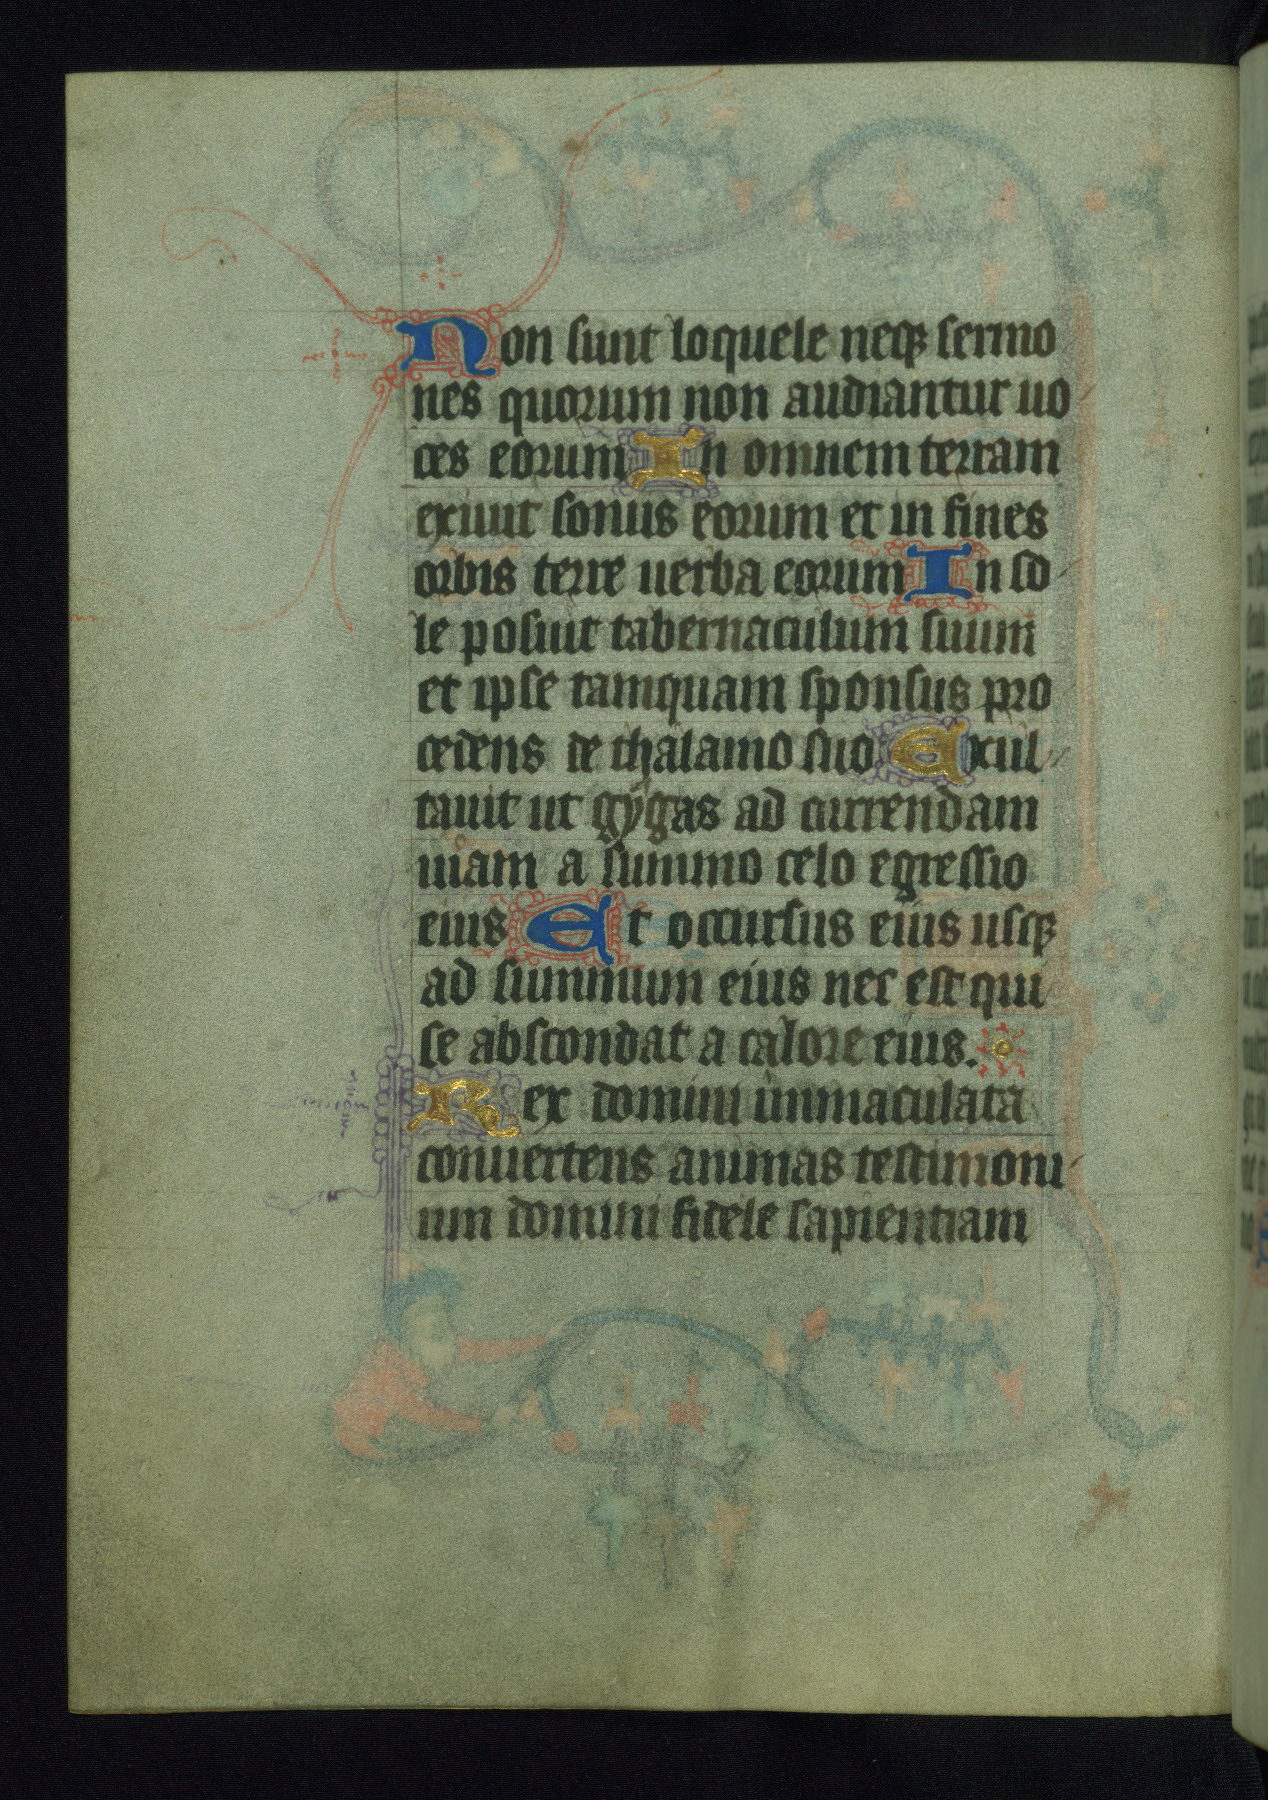 Non sunt loquele neqꝫ sermo
nes quorum non audiantur uo
ces eorum In omnem terram
exiuit sonus eorum et in fines
orbis terre uerba eorum In so
le posuit tabernaculum suum
et ipse tamquam sponsus pro
cedens de thalamo suo Exul
tauit ut gygas ad currendam
uiam a summo celo egressio
eius Et occursus eius usqꝫ
ad summum eius nec est qui
se abscondat a calore eius.
Rex domini immaculata
conuertens animas testimoni
um domini fidele sapientiam